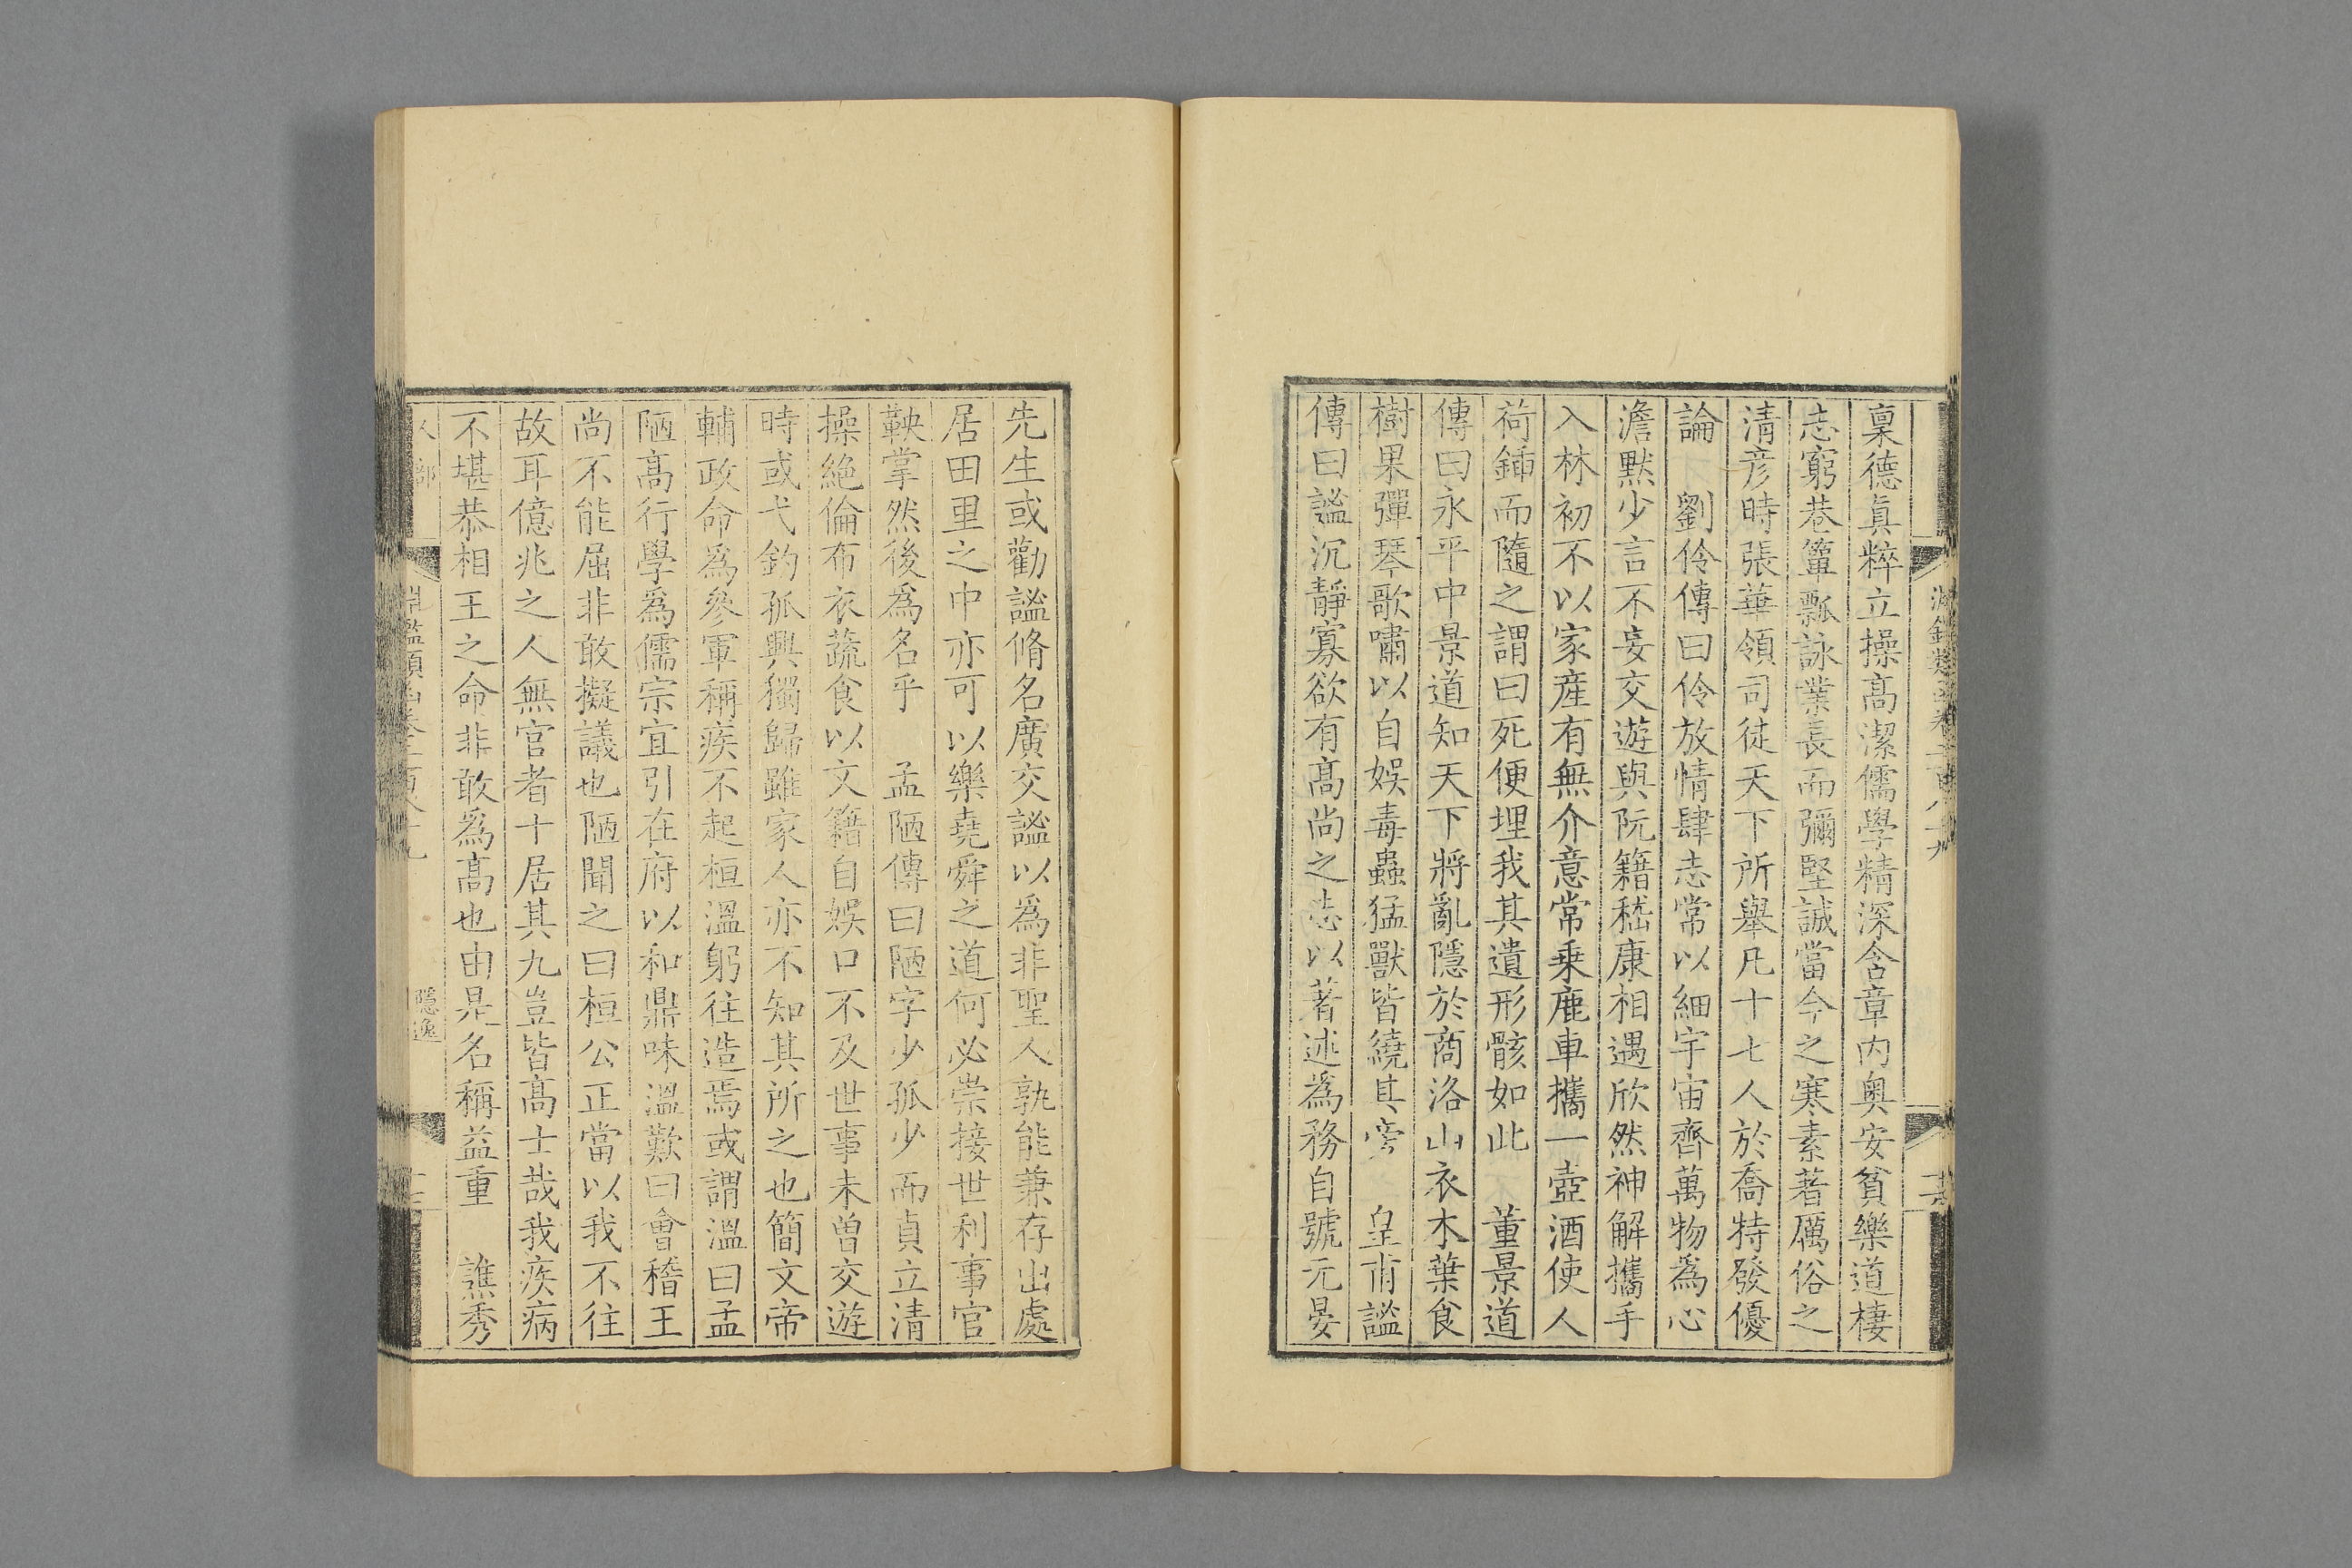 稟德真粹立操高潔儒學精深含章内奥安貧樂道棲
志窮巷簞瓢詠業長而彌堅誠當今之寒素著厲俗之
清彦時張華領司徒天下所舉凡十七人於喬特發優
論　劉伶傳曰伶放情肆志常以細宇宙齊萬物為心
澹默少言不妄交遊與阮籍嵇康相遇欣然神解攜手
入林初不以家産有無介意常乗鹿車攜一壺酒使人
荷鍤而隨之謂曰死便埋我其遺形骸如此　董景道
傳曰永平中景道知天下將亂隱於商洛山衣木葉食
樹果彈琴歌嘯以自娛毒蟲猛獸皆繞其旁　皇甫謐
傳曰謐沉靜寡欲有高尚之志以著述為務自號元晏
先生或勸謐脩名廣交謐以為非聖人孰能兼存出處
居田里之中亦可以樂堯舜之道何必崇接世利事官
鞅掌然後為名乎　孟陋傳曰陋字少孤少而貞立清
操絶倫布衣蔬食以文籍自娛口不及世事未曽交遊
時或弋釣孤興獨歸雖家人亦不知其所之也簡文帝
輔政命為參軍稱疾不起桓溫躬往造焉或謂溫曰孟
陋高行學為儒宗宜引在府以和鼎味溫歎曰會稽王
尚不能屈非敢擬議也陋聞之曰桓公正當以我不往
故耳億兆之人無官者十居其九豈皆高士哉我疾病
不堪恭相王之命非敢為高也由是名稱益重　譙秀
隱逸